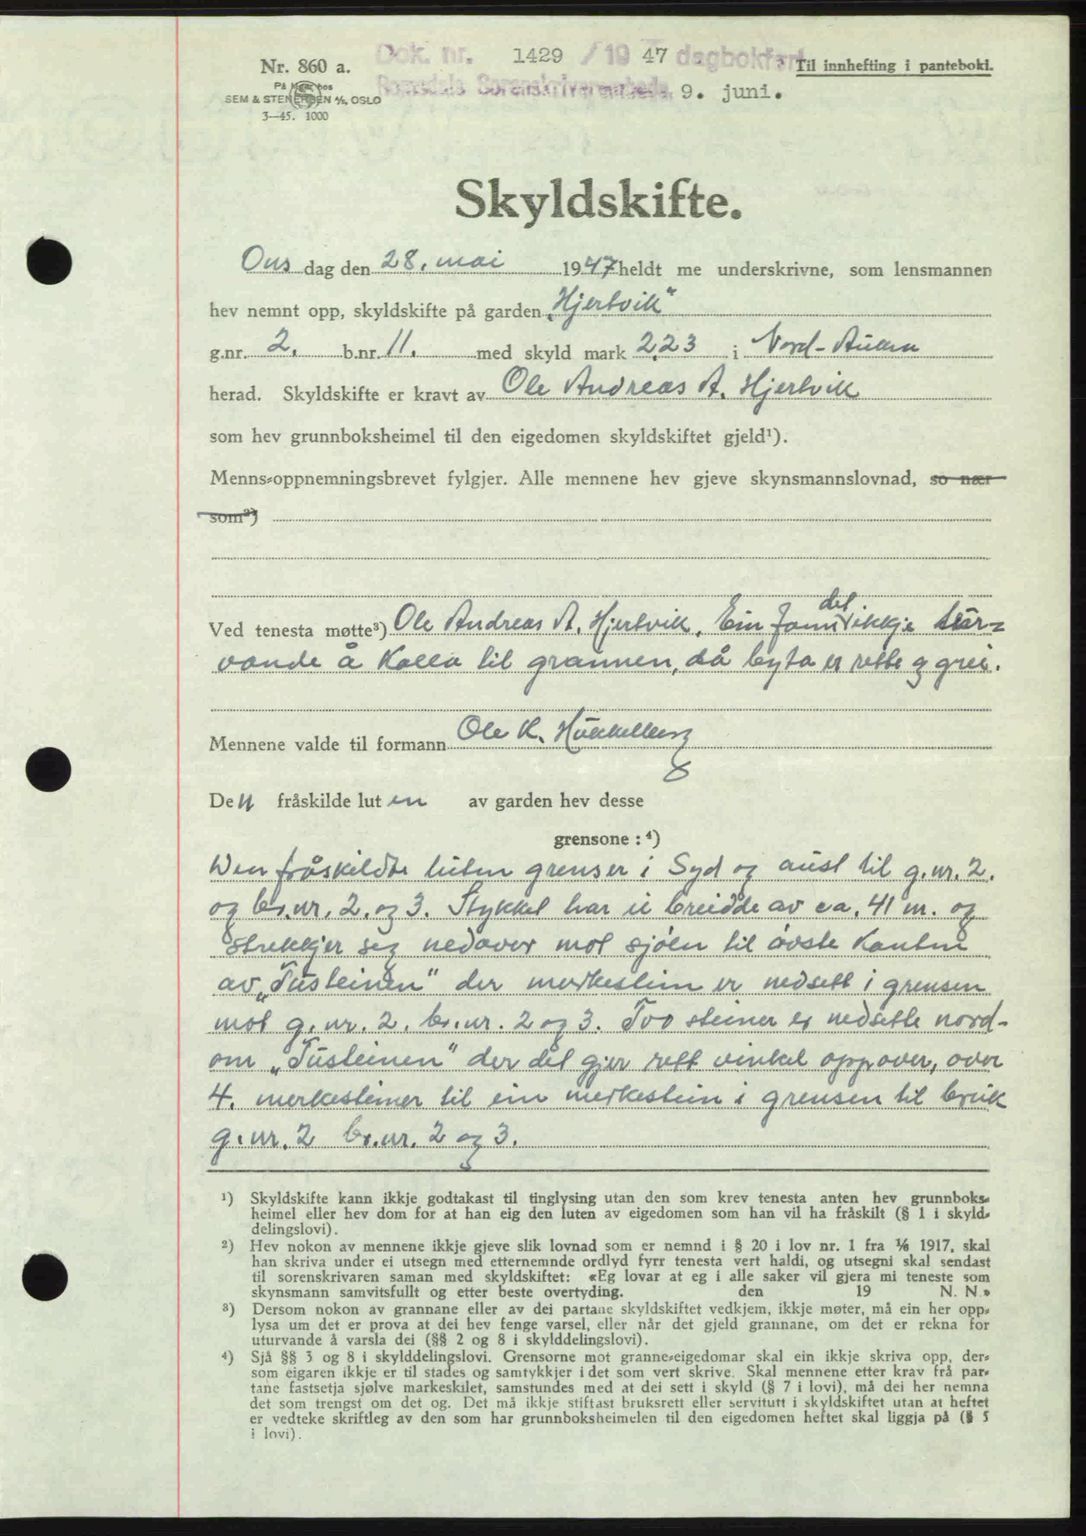 Dok. nr. 1429 / 19 47 dagbokført
Nr. 860 a.
Til innhefting i pantebok.
På lager hos
Romsdals Sorenskriverembede 9. juni.
SEM & STENERSEN A/S, OSLO
3—45. 1000
Skyldskifte.
Ons dag den 28. mai 1947 heldt me underskrivne, som lensmannen
hev nemnt opp, skyldskifte på garden „Hjertvik"
g.nr. 2. b.nr. 11. med skyld mark 2,23 i Nord-Aukra
herad. Skyldskifte er kravt av Ole Andreas A. Hjertvik
som hev grunnboksheimel til den eigedomen skyldskiftet gjeld¹).
Menns-oppnemningsbrevet fylgjer. Alle mennene hev gjeve skynsmannslovnad, so nær
som²)
Ved tenesta møtte³) Ole Andreas A. Hjertvik. Ein fann det ikkje tur-
vande å kalla til grannen, då byta er rette og grei.
Mennene valde til formann Ole K. Hukkelberg
Den fråskilde luten av garden hev desse
grensone : ⁴)
Den fråskildte luten grenser i Syd og aust til g.nr. 2.
og br.nr. 2. og 3. Stykket har ei breidde av ca. 41 m. og
strekkjer seg nedover mot sjøen til øvste kanten
av „Tusteinen" der merkestein er nedsett i grensen
mot g.nr. 2. br.nr. 2 og 3. Tvo steiner er nedsette nord-
om „Tusteinen" der det gjer rett vinkel oppover, over
4. merkesteiner til ein merkestein i grensen til bruk
g.nr. 2 br.nr. 2 og 3.
¹) Skyldskifte kann ikkje godtakast til tinglysing utan den som krev tenesta anten hev grunnboks-
heimel eller hev dom for at han eig den luten av eigedomen som han vil ha fråskilt (§ 1 i skyld-
delingslovi).
²) Hev nokon av mennene ikkje gjeve slik lovnad som er nemnd i § 20 i lov nr. 1 fra 1/6 1917, skal
han skriva under ei utsegn med etternemnde ordlyd fyrr tenesta vert haldi, og utsegni skal sendast
til sorenskrivaren saman med skyldskiftet: «Eg lovar at eg i alle saker vil gjera mi teneste som
skynsmann samvitsfullt og etter beste overtyding. den 19 N. N.»
³) Dersom nokon av grannane eller av dei partane skyldskiftet vedkjem, ikkje møter, må ein her opp-
lysa um det er prova at dei hev fenge varsel, eller når det gjeld grannane, om det er rekna for
uturvande å varsla dei (§§ 2 og 8 i skylddelingslovi).
⁴) Sjå §§ 3 og 8 i skylddelingslovi. Grensorne mot granne-eigedomar skal ein ikkje skriva opp, der-
som eigaren ikkje er til stades og samtykkjer i det som vert skrive. Skal mennene etter krav frå par-
tane fastsetja sjølve markeskilet, samstundes med at dei sett i skyld (§ 7 i lovi), må dei her nemna
det som trengst om det og. Det må ikkje stiftast bruksrett eller servitutt i skyldskiftet utan at heftet
er vedteke skriftleg av den som har grunnboksheimelen til den eigedomen heftet skal liggja på (§ 5
i lovi).